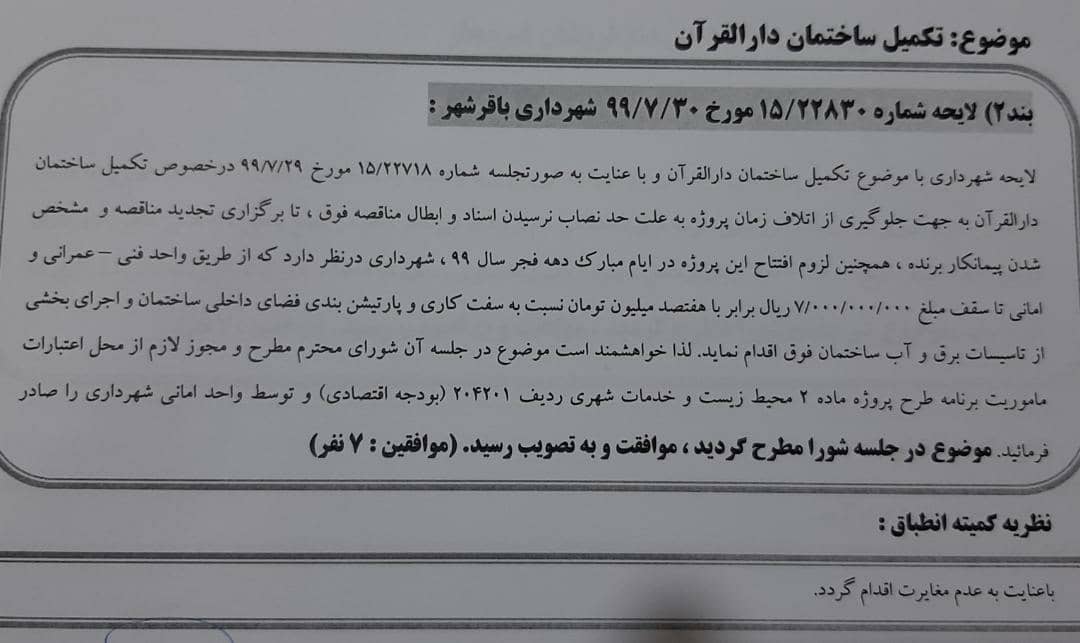 موضوع: تکمیل ساختمان دارالقرآن
بند۲) لایحه شماره ۱۵/۲۲۸۳۰ مورخ ۹۹/۷/۳۰ شهرداری باقرشهر :
لایحه شهرداری با موضوع تکمیل ساختمان دارالقرآن و با عنایت به صورتجلسه شماره ۱۵/۲۲۷۱۸ مورخ ۹۹/۷/۲۹ درخصوص تکمیل ساختمان
دارالقرآن به جهت جلوگیری از اتلاف زمان پروژه به علت حد نصاب نرسیدن اسناد و ابطال مناقصه فوق ، تا برگزاری تجدید مناقصه و مشخص
شدن پیمانکار برنده ، همچنین لزوم افتتاح این پروژه در ایام مبارک دهه فجر سال ۹۹ ، شهرداری درنظر دارد که از طریق واحد فنی – عمرانی و
امانی تا سقف مبلغ ۷/۰۰۰/۰۰۰/۰۰۰ ریال برابر با هفتصد میلیون تومان نسبت به سفت کاری و پارتیشن بندی فضای داخلی ساختمان و اجرای بخشی
از تاسیسات برق و آب ساختمان فوق اقدام نماید. لذا خواهشمند است موضوع در جلسه آن شورای محترم مطرح و مجوز لازم از محل اعتبارات
ماموریت برنامه طرح پروژه ماده ۲ محیط زیست و خدمات شهری ردیف ۲۰۴۲۰۱ (بودجه اقتصادی) و توسط واحد امانی شهرداری را صادر
فرمائید. موضوع در جلسه شورا مطرح گردید ، موافقت و به تصویب رسید. (موافقین : ۷ نفر)
نظریه کمیته انطباق :
باعنایت به عدم مغایرت اقدام گردد.